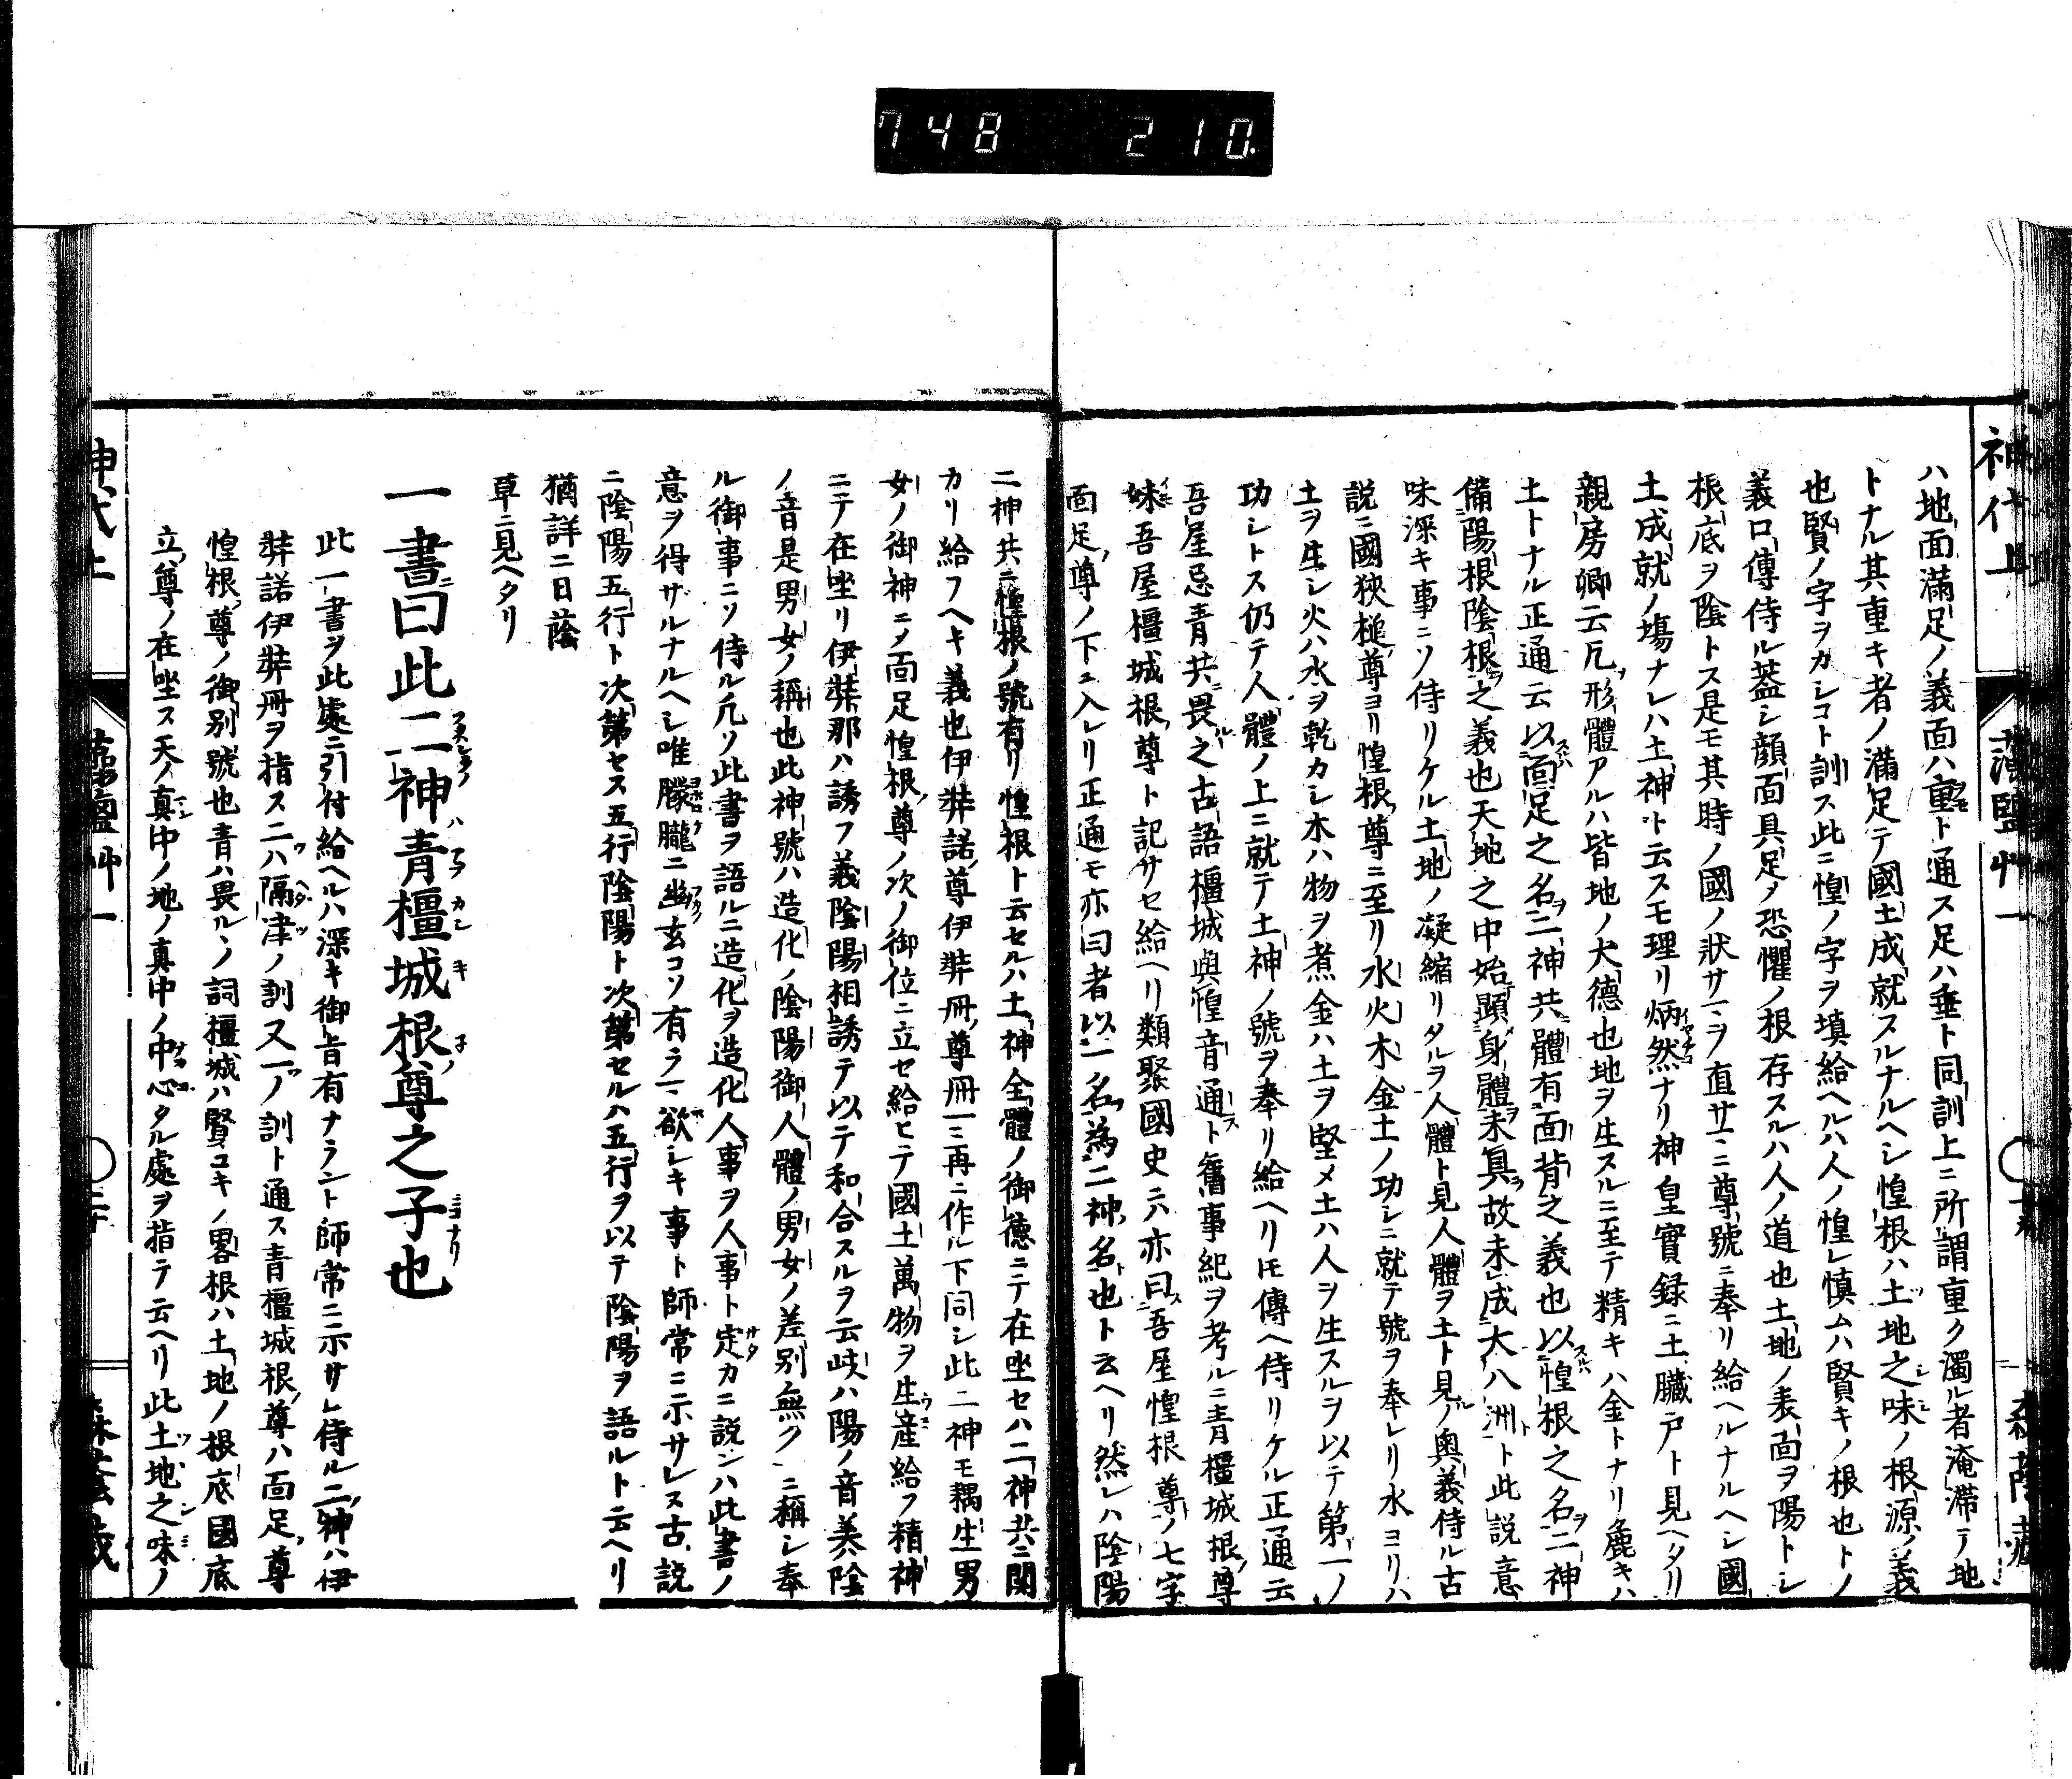 748 210
神代上
藻鹽艸一
ハ地面滿足ノ義面ハ重ト通ス足ハ垂ト同訓上ニ所謂重ク濁ル者淹滯テ地
トナル其重キ者ノ滿足テ國土成就スルナルヘシ惶根ハ土地之味ノ根源ノ義
也賢ノ字ヲカシコト訓ス此ニ惶ノ字ヲ填給ヘルハ人ノ惶レ慎ムハ賢キノ根也トノ
義口傳侍ル蓋シ顔面具足ヲ恐懼ノ根存スルハ人ノ道也土地ノ表面ヲ陽トシ
根底ヲ陰トス是モ其時ノ國ノ狀サマヲ直サマニ尊號ニ奉リ給ヘルナルヘシ國
土成就ノ塲ナレハ土神ト云スモ理リ炳然ナリ神皇實録ニ土臓戸ト見ヘタリ
親房卿云凡形體アルハ皆地ノ大德也地ヲ生スルニ至テ精キハ金トナリ麁キハ
土トナル正通云以面足之名二神共體有面背之義也以惶根之名二神
備陽根陰根之義也天地之中始顯身體未眞故未成大八洲ト此説意
味深キ事ニソ侍リケル土地ノ凝縮リタルヲ人體ト見人體ヲ土ト見ノ奧義侍ル古
説ニ國狹槌尊ヨリ惶根尊ニ至リ水火木金土ノ功シニ就テ號ヲ奉レリ水ヨリハ
土ヲ生シ火ハ水ヲ乾カシ木ハ物ヲ煮金ハ土ヲ堅メ土ハ人ヲ生スルヲ以テ第一ノ
功シトス仍テ人體ノ上ニ就テ土神ノ號ヲ奉リ給ヘリトモ傳ヘ侍リケル正通云
吾屋忌青共畏之古語橿城與惶音通ト舊事紀ヲ考ルニ青橿城根尊
妹吾屋橿城根尊ト記サセ給ヘリ類聚國史ニ亦曰吾屋惶根尊ノ七字
面足尊ノ下ニ入レリ正通モ亦曰者以一名為二神名也ト云ヘリ然レハ陰陽
二神共ニ橿根ノ號有リ惶根ト云セルハ土神全體ノ御德ニテ在坐セハ二神共ニ關
カリ給フヘキ義也伊弉諾尊伊弉冊尊冊一ニ再ニ作ル下同シ此二神モ耦生男
女ノ御神ニメ面足惶根尊ノ次ノ御位ニ立セ給ヒテ國土萬物ヲ生産給フ精神
ニテ在坐リ伊弉那ハ誘フ義陰陽相誘テ以テ和合スルヲ云岐ハ陽ノ音美陰
ノ音是男女ノ稱也此神號ハ造化ノ陰陽御人體ノ男女ノ差別無クニ稱シ奉
ル御事ニソ侍ル凡ソ此書ヲ語ルニ造化ヲ造化人事ヲ人事ト定カニ説ンハ此書ノ
意ヲ得サルナルヘシ唯朦朧ニ幽玄コソ有ラマ欲シキ事ト師常ニ示サレス古説
ニ陰陽五行ト次第セス五行陰陽ト次第セルハ五行ヲ以テ陰陽ヲ語ルト云ヘリ
猶詳ニ日蔭
草ニ見ヘタリ
一書曰此二神青橿城根尊之子也
此一書ヲ此處ニ引付給ヘルハ深キ御旨有ナラント師常ニ示サレ侍ル二神ハ伊
弉諾伊弉冊ヲ指ス二ハ隔津ノ訓又一ノ訓ト通ス青橿城根尊ハ面足尊
惶根尊ノ御別號也青ハ畏ルノ詞橿城ハ賢コキノ畧根ハ土地ノ根底國底
立尊ノ在坐ス天ノ真中ノ地ノ真中ノ中心タル處ヲ指テ云ヘリ此土地之味ノ
神代上
藻鹽艸一
二十